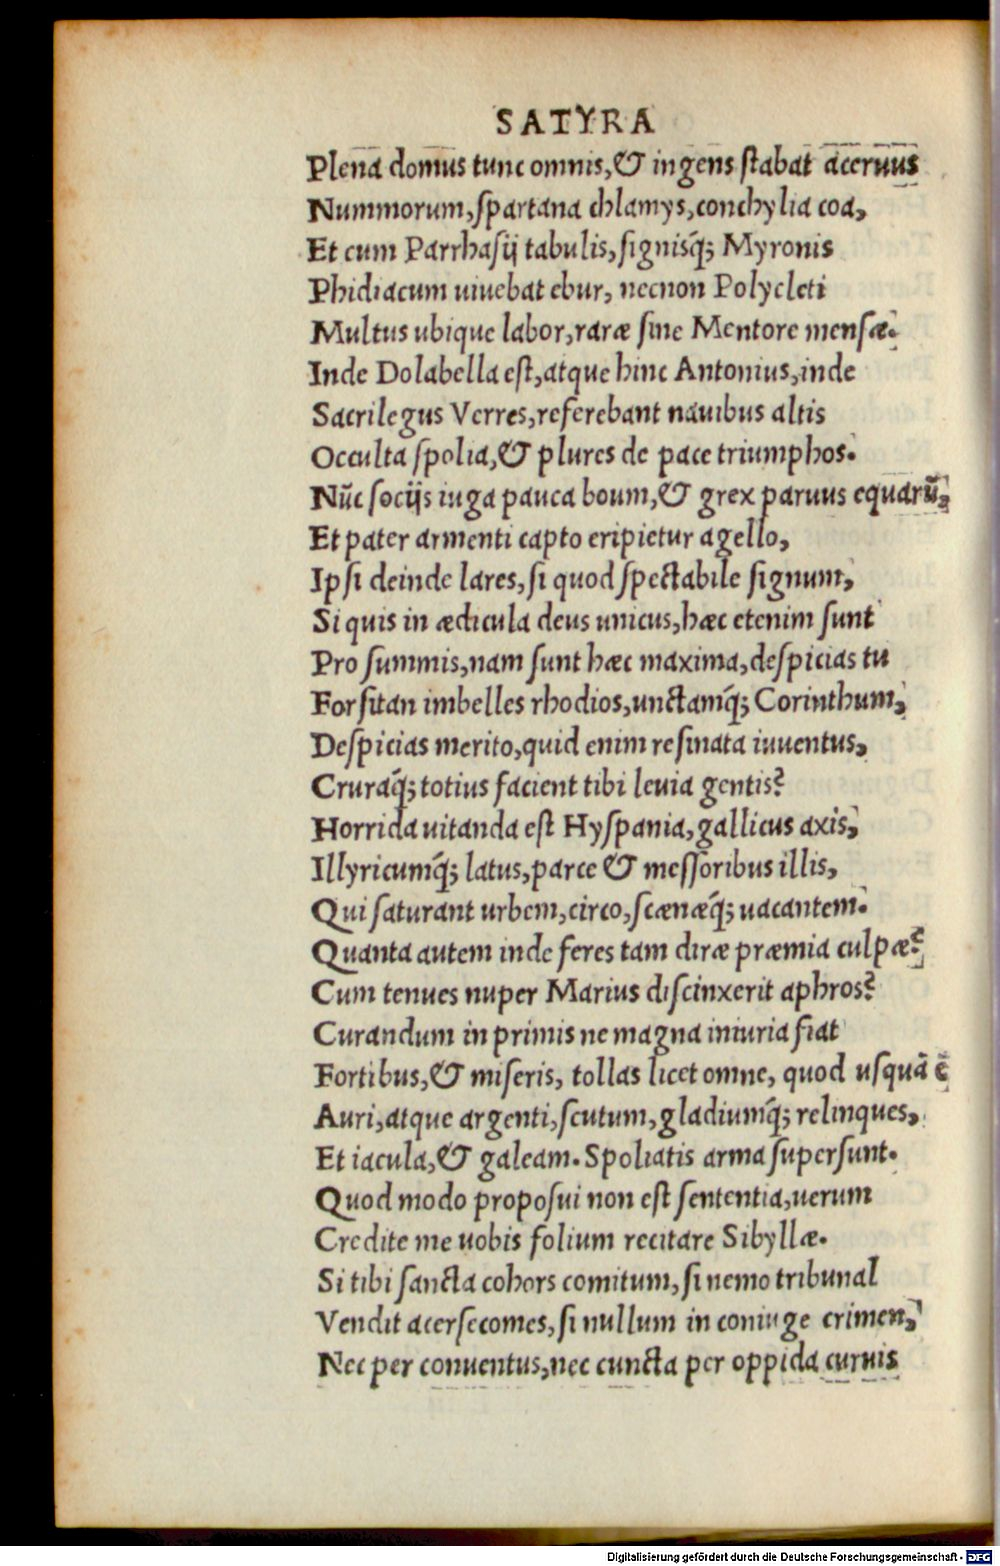 SATYRA
Plena domus tunc omnis,& ingens ſtabat aceruus
Nummorum,ſpartana chlamys,conchylia coa,
Et cum Parrhaſij tabulis,ſigniſq́; Myronis
Phidiacum uiuebat ebur, necnon Polycleti
Multus ubique labor,raræ ſine Mentore menſæ.
Inde Dolabella eſt,atque hinc Antonius,inde
Sacrilegus Verres,referebant nauibus altis
Occulta ſpolia,& plures de pace triumphos.
Nūc ſocijs iuga pauca boum,& grex paruus equarū,
Et pater armenti capto eripietur agello,
Ipſi deinde lares,ſi quod ſpectabile ſignum,
Si quis in ædicula deus unicus,hæc etenim ſunt
Pro ſummis,nam ſunt hæc maxima,deſpicias tu
Forſitan imbelles rhodios,unctamq́; Corinthum,
Deſpicias merito,quid enim reſinata iuuentus,
Cruraq́; totius facient tibi leuia gentis?
Horrida uitanda eſt Hyſpania,gallicus axis,
Illyricumq́; latus,parce & meſſoribus illis,
Qui ſaturant urbem,circo,ſcænæq́; uacantem.
Quanta autem inde feres tam diræ præmia culpæ?
Cum tenues nuper Marius diſcinxerit aphros?
Curandum in primis ne magna iniuria fiat
Fortibus,& miſeris, tollas licet omne, quod uſquā ē
Auri,atque argenti,ſcutum,gladiumq́; relinques,
Et iacula,& galeam.Spoliatis arma ſuperſunt.
Quod modo propoſui non eſt ſententia,uerum
Credite me uobis folium recitare Sibyllæ.
Si tibi ſancta cohors comitum,ſi nemo tribunal
Vendit acerſecomes,ſi nullum in coniuge crimen,
Nec per conuentus,nec cuncta per oppida curuis
Digitalisierung gefördert durch die Deutsche Forschungsgemeinschaft - DFG